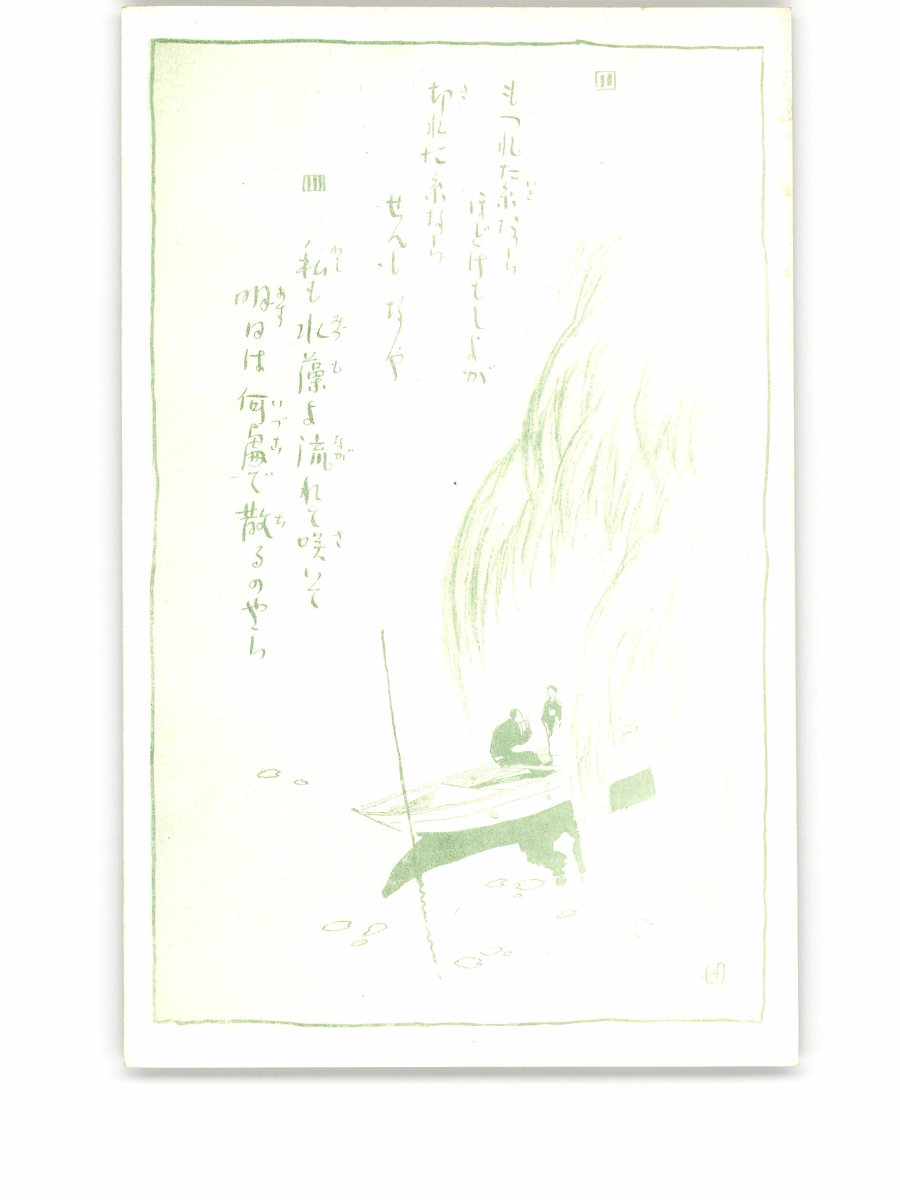 二
もつれた糸なら
ほどけもしよが
切れた糸なら
せんもなや
三
私も水藻よ流れて咲いて
明日は何處で散るのやら